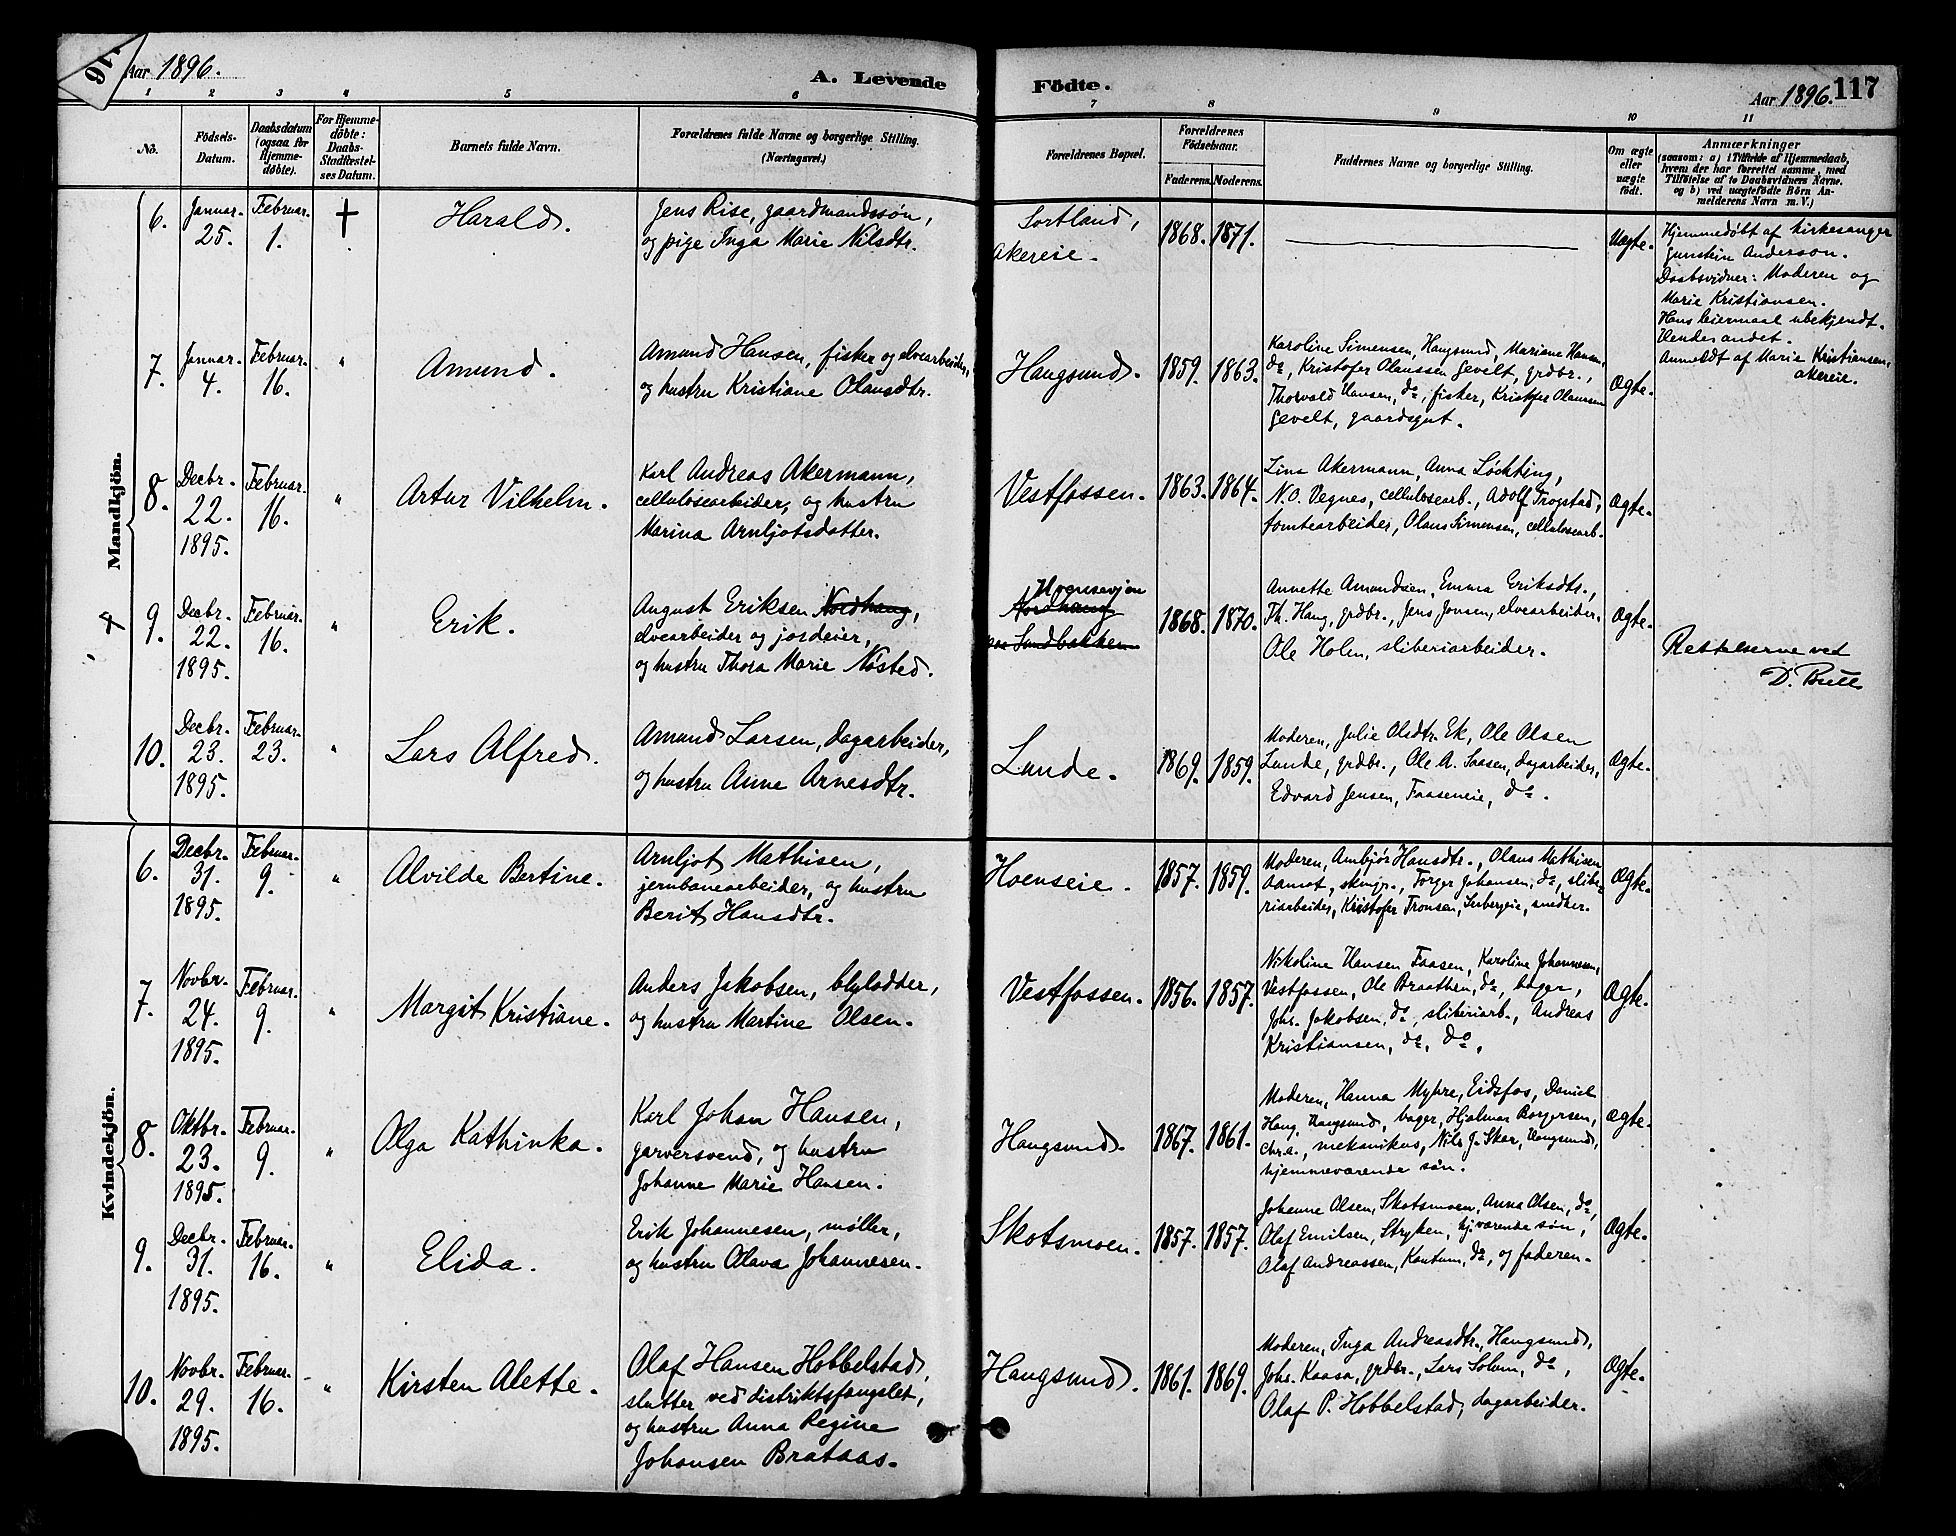 Aar 1896.
A. Levende Födte.
Aar 1896. 117
1 2 3 4 5 6 7 8 9 10 11
No.
Födsels-Datum.
Daabsdatum (ogsaa for Hjemmedöbte).
For Hjemmedöbte: Daabs-Stadfæstelses Datum.
Barnets fulde Navn.
Forældrenes fulde Navne og borgerlige Stilling.
(Næringsvei.)
Forældrenes Bopæl.
Forældrenes Födselsaar.
Faderens. Moderens.
Faddernes Navne og borgerlige Stilling.
Om ægte eller uægte födt.
Anmærkninger
(saasom: a) i Tilfælde af Hjemmedaab, hvem der har forrettet samme, med Tilföielse af to Daabsvidners Navne, og b) ved uægtefödte Börn Anmelderens Navn m. V.)
Mandkjön.
6. Januar 25. Februar 1. † Harald.
Jens Rise, gaardmandssøn,
og pige Inga Marie Nilsdtr.
Sortland,
Akereie.
1868. 1871.
Uægte.
Hjemmedøbt af kirkesanger
Gunstein Anderson.
Daabsvidner: Moderen og
Marie Kristiansen.
Hans leiermaal ubekjendt.
Hendes andet.
Anmeldt af Marie Kristiansen,
Akereie.
7. Januar 4. Februar 16. " Amund.
Amund Hansen, fisker og elvearbeider,
og hustru Kristiane Olausdtr.
Haugsund. 1859. 1863.
Karoline Simensen, Haugsund, Mariane Hansen,
do, Kristofer Olaussen Gevelt, grdbr.,
Thorvald Hansen, do, fisker, Kristofer Olaussen
Gevelt, gaardsgut.
Ægte.
8. Decbr. 22. 1895. Februar 16. " Artur Vilhelm.
Karl Andreas Akermann,
cellulosearbeider, og hustru
Marina Arnljotsdatter.
Vestfossen. 1863. 1864.
Lina Akermann, Anna Løchting,
N.O. Vegnes, cellulosearb., Adolf Trogstad,
tomtearbeider, Olaus Simensen, cellulosearb.
Ægte.
9. Decbr. 22. 1895. Februar 16. " Erik.
August Eriksen Nordhaug,
elvearbeider og jordeier,
og hustru Thora Marie Nøsted.
Nordhaug
Sandbakken
1868. 1870.
Annette Amundsen, Emma Eriksdtr.,
Th. Haug, grdbr., Jens Jensen, elvearbeider.
Ole Holm, sliberiarbeider.
Ægte.
Rettelserne ved
D. Bull
10. Decbr. 23. 1895. Februar 23. " Lars Alfred.
Amund Larsen, dagarbeider,
og hustru Anne Arnesdtr.
Lunde. 1869. 1859.
Moderen, Julie Olsdtr. Ek, Ole Olsen
Lunde, grdbr., Ole A. Saasen, dagarbeider,
Edvard Jensen, Faaseneie, do.
Ægte.
Kvindekjön.
6. Decbr. 31. 1895. Februar 9. " Alvilde Bertine.
Arnljot Mathisen,
jernbanearbeider, og hustru
Berit Hansdtr.
Hoenseie. 1857. 1859.
Moderen, Ambjør Hansdtr., Olaus Mathisen
Aamot, Torger Johansen, do, sliberiarbeider,
Kristofer Tronsen, snedker.
Ægte.
7. Novbr. 24. 1895. Februar 9. " Margit Kristiane.
Anders Jakobsen, blylodder,
og hustru Martine Olsen.
Vestfossen. 1856. 1857.
Nikoline Hansen Faasen, Karoline Johannesen,
Vestfossen, Ole Braathen, do, bager,
Johs. Jakobsen, do, sliberiarb., Andreas
Kristiansen, do, do,
Ægte.
8. Oktbr. 23. 1895. Februar 9. " Olga Kathinka.
Karl Johan Hansen,
garversvend, og hustru
Johanne Marie Hansen.
Haugsund. 1867. 1861.
Moderen, Hanna Myhre, Eidsfos, Daniel
Haug, Haugsund, bager, Hjalmar Borgersen,
Chr.a., mekanikus, Nils J. Skar, Haugsund,
hjemmeværende søn.
Ægte.
9. Decbr. 31. 1895. Februar 16. " Elida.
Erik Johannesen, møller,
og hustru Olava Johannesen.
Skotsmoen. 1857. 1857.
Johanne Olsen, Skotsmoen, Anna Olsen, do,
Olaf Emilsen, Stryken, hj.værende søn,
Olaf Andreassen, Kantum, do, og faderen.
Ægte.
10. Novbr. 29. 1895. Februar 16. " Kirsten Alette.
Olaf Hansen Hobbelstad,
slutter ved distriktsfængslet,
og hustru Anna Regine
Johansen Brataas.
Haugsund. 1861. 1869.
Moderen, Inga Andreasdtr., Haugsund,
Johs. Kaasa, grdbr., Lars Solum, do,
Olaf P. Hobbelstad, dagarbeider.
Ægte.